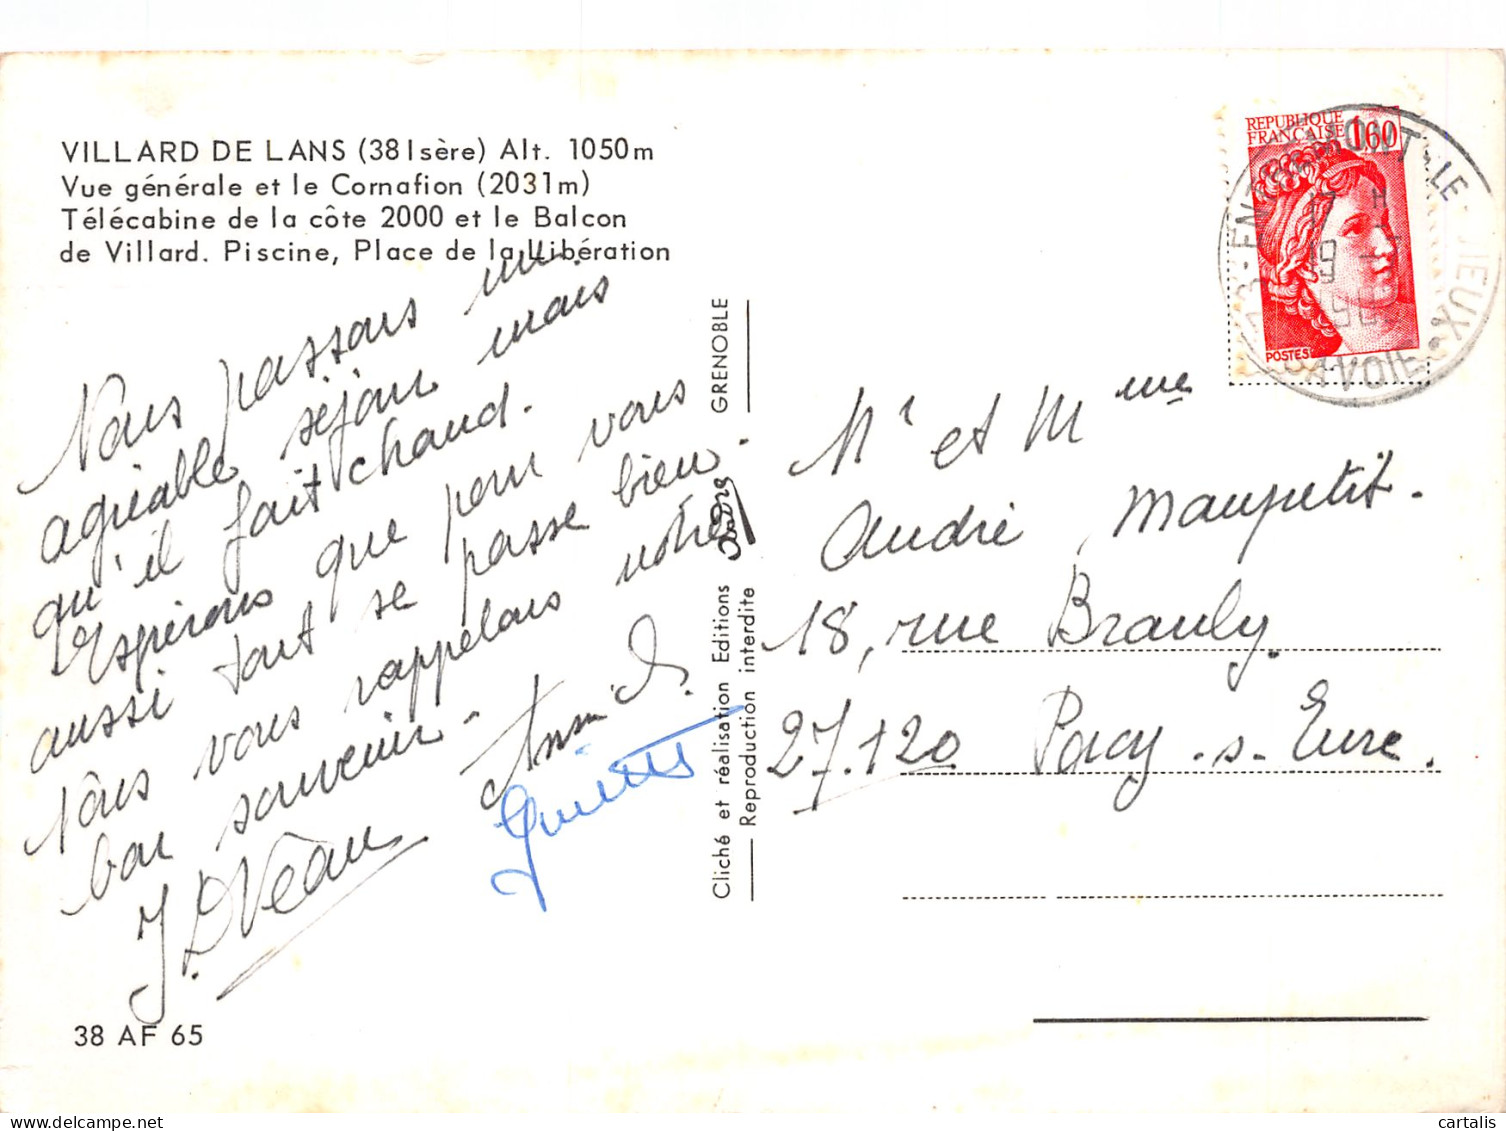 VILLARD DE LANS (38 Isère) Alt. 1050m
Vue générale et le Cornafion (2031m)
Télécabine de la côte 2000 et le Balcon
de Villard. Piscine, Place de la Libération
Nous passons un
agréable séjour mais
qu'il fait chaud.
Espérons que pour vous
aussi tout se passe bien.
Nous vous rappelons notre
bon souvenir -
38 AF 65
GRENOBLE
Cliché et réalisation Editions
Reproduction interdite
REPUBLIQUE
FRANCAISE 1,60
POSTES
ENTREMONT-LE-VIEUX
17 H
19 -
SAVOIE
Mr et Mme
André Maupetit.
18, rue Brauly.
27.120 Pacy-s-Eure.
www.delcampe.net
cartalis